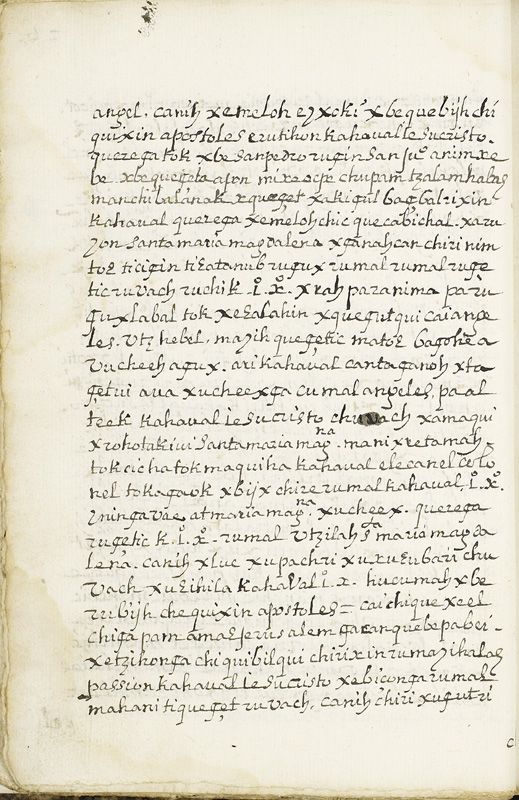 angel. canih xemeloh ez xoki x be que bijh chi
quixin apostoles erutihon kahaval Jesucristo.
querega tok xbe san pedro rugin San Juº anim xe
be xbequeçeta apon mixocpe chupam tzalam habas
manchi balanak xqueget xakigul bagbal rixin
kahaval querega xemeloh chic que cabichal. xaru
yon santa maria magdalena xganah can chiri nim
toE ticigin tiEatanub rugux rumal rumal ruge
tic ruvach ruchik. i. x. xrah paranima paru
guxlabal tok xeEalahin xquegut qui cai ange
les. vtz hebel. mazih quegetic matoE bagohea
vucheeh agux. ari kahaval cantaganoh xta
getui ava xucheexga cumal angeles, pa al
teek kahaval Jesucristo chuvach xamaqui
xrohotakivi Santa maria magna. mani xretamah
tok cicha tok maquiha kahaval ele canel colo
nel tok agaok xbijx chire rumal kahaval, i. x.
yninga vae at maria magna, xucheex. querega
rugetic k. i. x. rumal vtzilah sta maria magda
lena. canih xluc xupachri xuxuEubari chu
vach xuEihila kahaval i. x. hucumah xbe
rubijh che quixin apostoles = caichique xeel
chiga pam amaE jerusalem gacanquebe pabei -
xetzihonga chiquibil qui chirixin rumazihalas
passion kahaval Jesucristo xebiconga rumal
mahani tiqueget ruvach. canih chiri xugutri